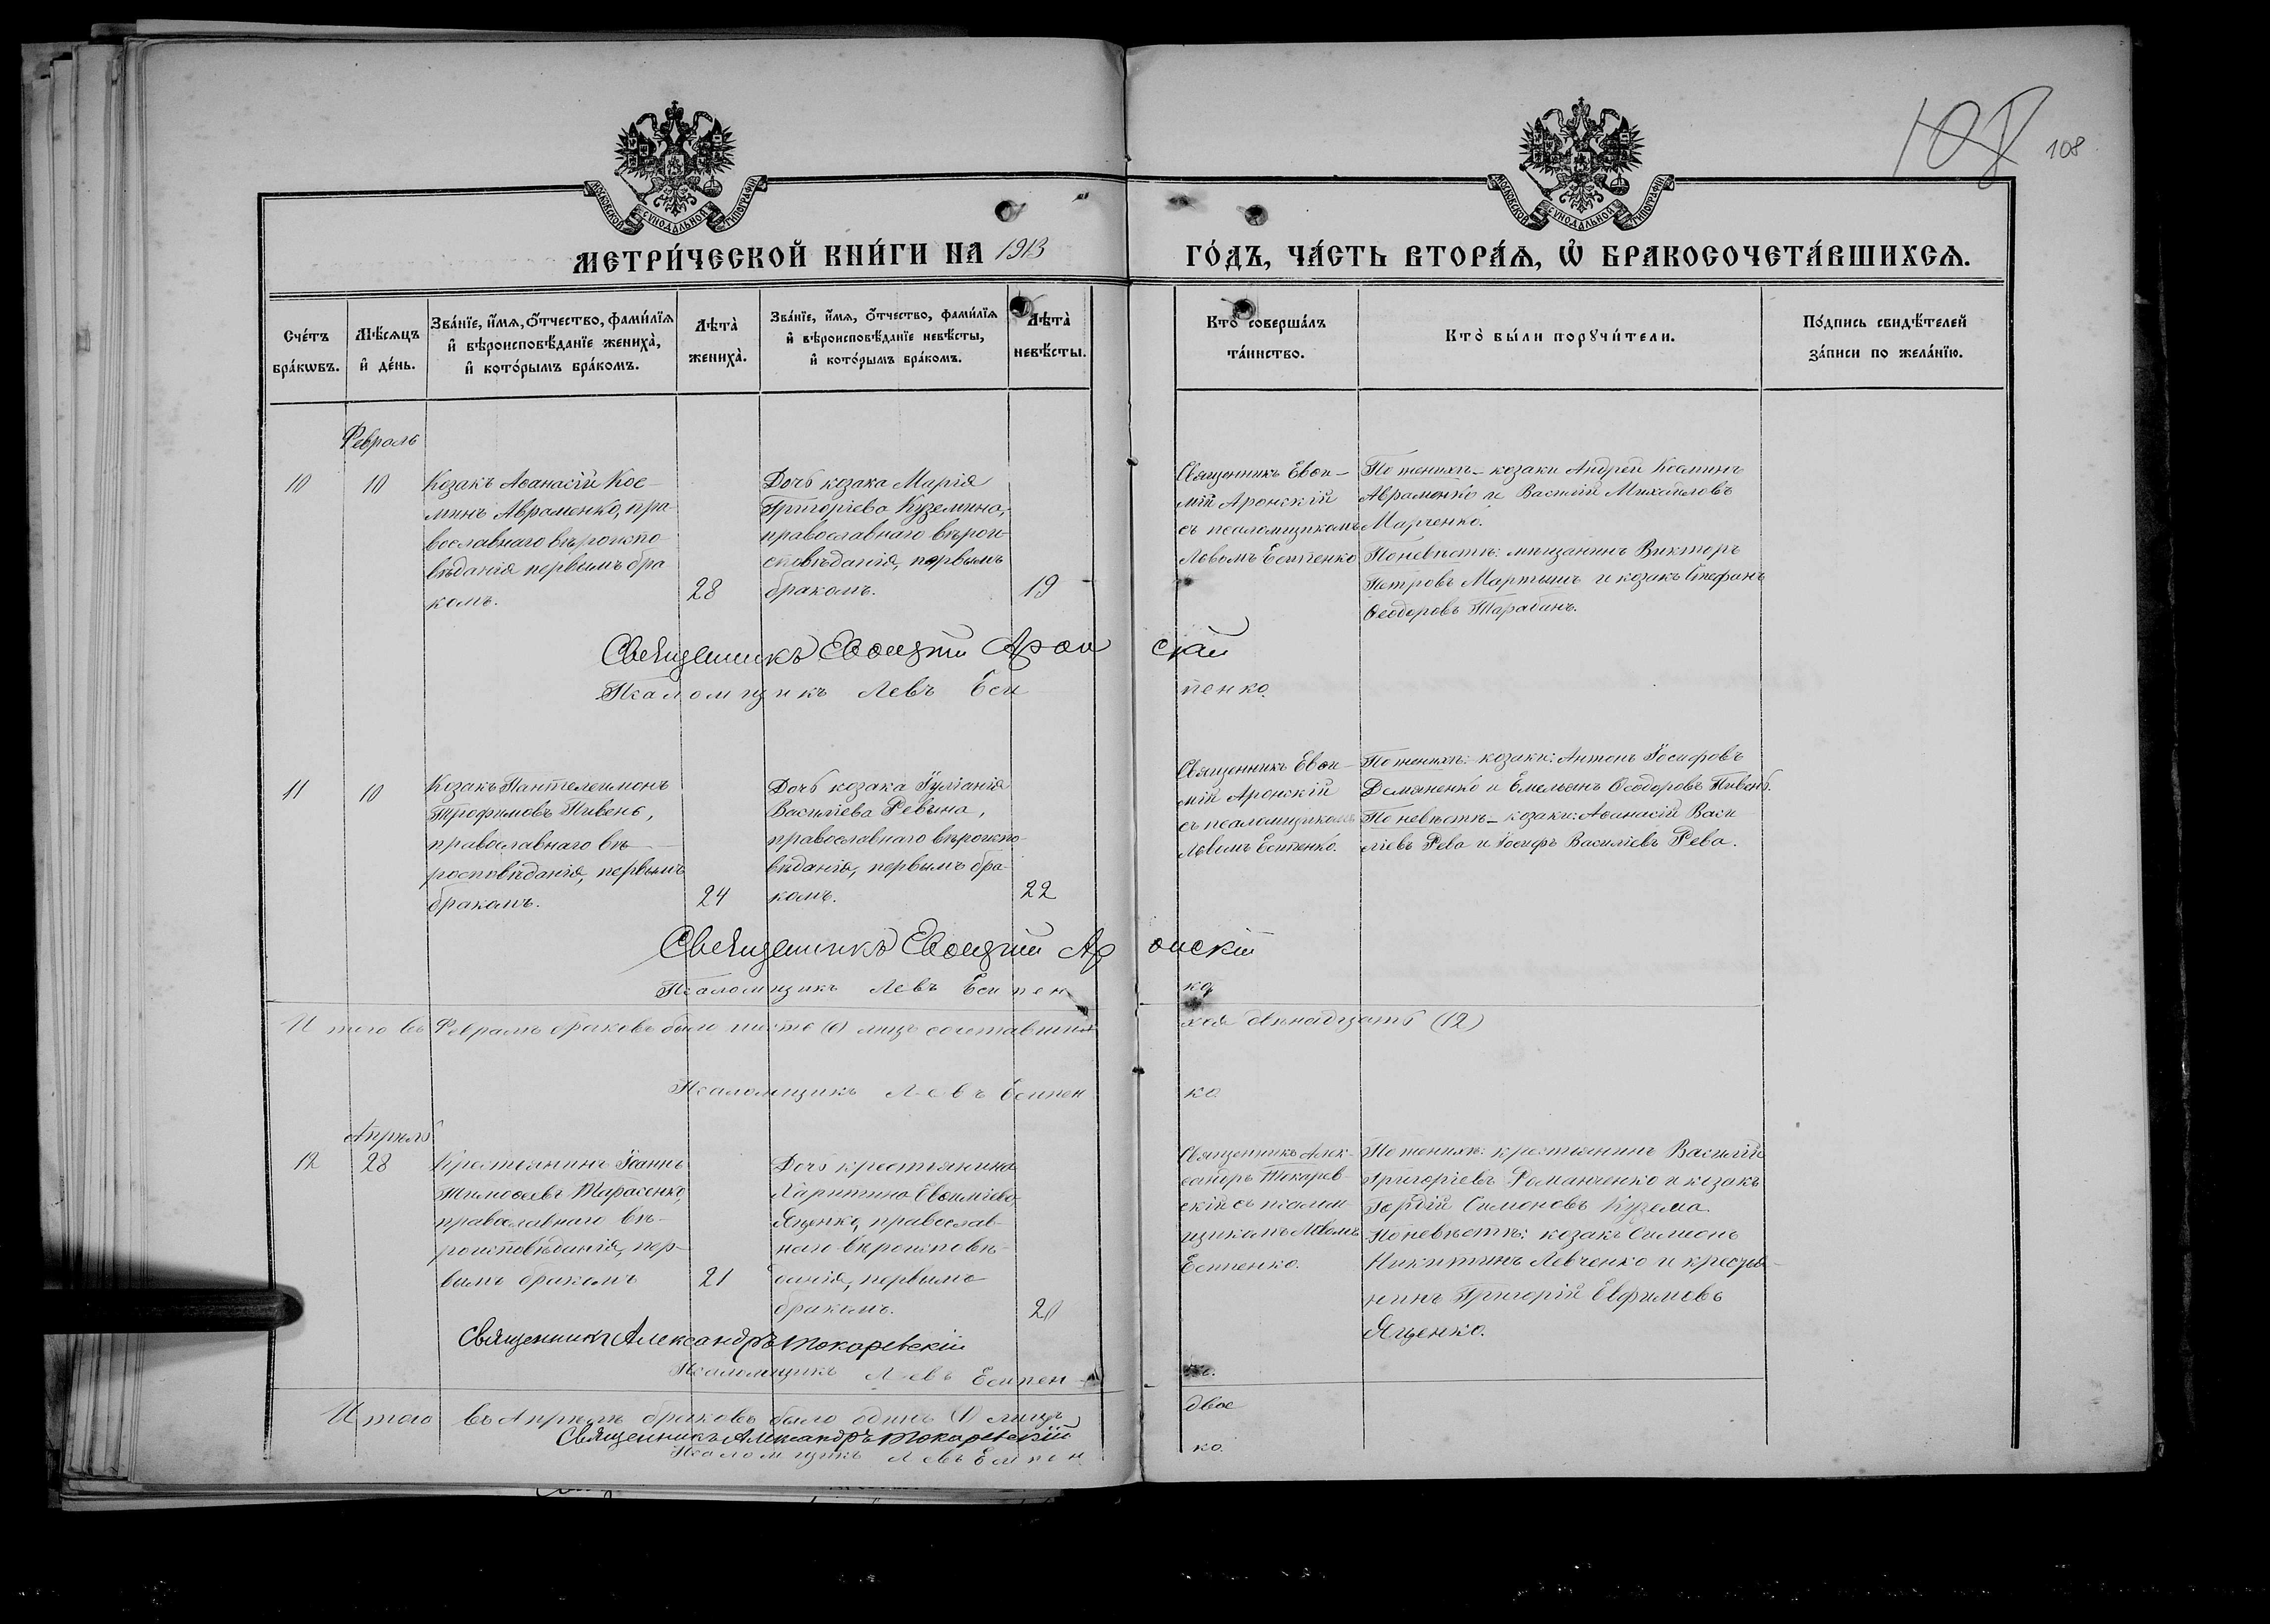 108
108
МОСКОВСКОЙ СУНОДАЛЬНОЙ ТИПОГРАФІИ
МОСКОВСКОЙ СУНОДАЛЬНОЙ ТИПОГРАФІИ
МЕТРИ́ЧЕСКОЙ КНИ́ГИ НА 1913 ГО́ДЪ, ЧА́СТЬ ВТОРА́Ѧ, Ѽ БРАКОСОЧЕТА́ВШИХСѦ.
Сче́тъ
бра́кѡвъ.
Мѣ́сяцъ
и҆ де́нь.
Зва́нїе, и҆́мѧ, ѻ҆́тчество, фами́лїѧ
и҆ вѣроисповѣ́данїе жениха̀,
и҆ кото́рымъ бра́комъ.
Лѣта̀
жениха̀.
Зва́нїе, и҆́мѧ, ѻ҆́тчество, фами́лїѧ
и҆ вѣроисповѣ́данїе невѣ́сты,
и҆ кото́рымъ бра́комъ.
Лѣта̀
невѣ́сты.
Кто̀ соверша́лъ
та́инство.
Кто̀ бы́ли порꙋчи́тели.
По́дпись свидѣ́телей
за́писи по жела́нїю.
Февраль
10
10
Козакъ Аѳанасій Кос-
минъ Авраменко, пра-
вославнаго вѣроиспо-
вѣданія первымъ бра
комъ.
28
Дочь козака Марія
Григоріева Куземина,
православнаго вѣрои-
сповѣданія, первымъ
бракомъ.
19
Священникъ Евѳи-
мій Аронскій
съ псаломщикомъ
Львомъ Есипенко
По женихѣ - козаки Андрей Косминъ
Авраменко и Василій Михайловъ
Марченко.
По невѣстѣ: мѣщанинъ Викторъ
Петровъ Мартышъ и козакъ Стефанъ
Ѳеодоровъ Тарабинъ.
Священникъ Евѳимій Аронскій
Псаломщикъ Левъ Есипенко.
11
10
Козакъ Пантелеимонъ
Трофимовъ Пивень,
православнаго вѣ-
роисповѣданія, первымъ
бракомъ.
24
Дочь козака Іуліанія
Василіева Ревына,
православнаго вѣроиспо-
вѣданія, первымъ бра-
комъ.
22
Священникъ Евѳи-
мій Аронскій
съ псаломщикомъ
Львомъ Есипенко.
По женихѣ: козаки: Антонъ Іосифовъ
Демяненко и Емельянъ Ѳеодоровъ Пивень.
По невѣстѣ - козаки: Аѳанасій Васи
ліевъ Рева и Іосифъ Василіевъ Рева.
Священникъ Евѳимій Аронскій
Псаломщикъ Левъ Есипенко
Итого въ Февралѣ браковъ было шесть (6) лицъ сочетавшихся двѣнадцать (12)
Псаломщикъ Левъ Есипенко.
Апрѣль
12
28
Крестьянинъ Іоаннъ
Тимоѳеевъ Тарасенко,
православнаго вѣ-
роисповѣданія, пер-
вымъ бракомъ
21
Дочь крестьянина
Харитина Евѳиміева
Яценко, православ-
наго вѣроисповѣ-
данія, первымъ
бракомъ.
20
Священникъ Алек-
сандръ Токарев-
скій съ псалом-
щикомъ Львомъ
Есипенко.
По женихѣ: крестьянинъ Василій
Григоріевъ Романченко и козакъ
Гордій Симоновъ Кузема.
По невѣстѣ: козакъ Симеонъ
Никитинъ Левченко и крестья-
нинъ Григорій Евфимовъ
Яценко.
Священникъ Александръ Токаревскій
Псаломщикъ Левъ Есипенко.
Итого въ Апрѣлѣ браковъ было одинъ (1) лицъ двое
Священникъ Александръ Токаревскій
Псаломщикъ Левъ Есипенко.